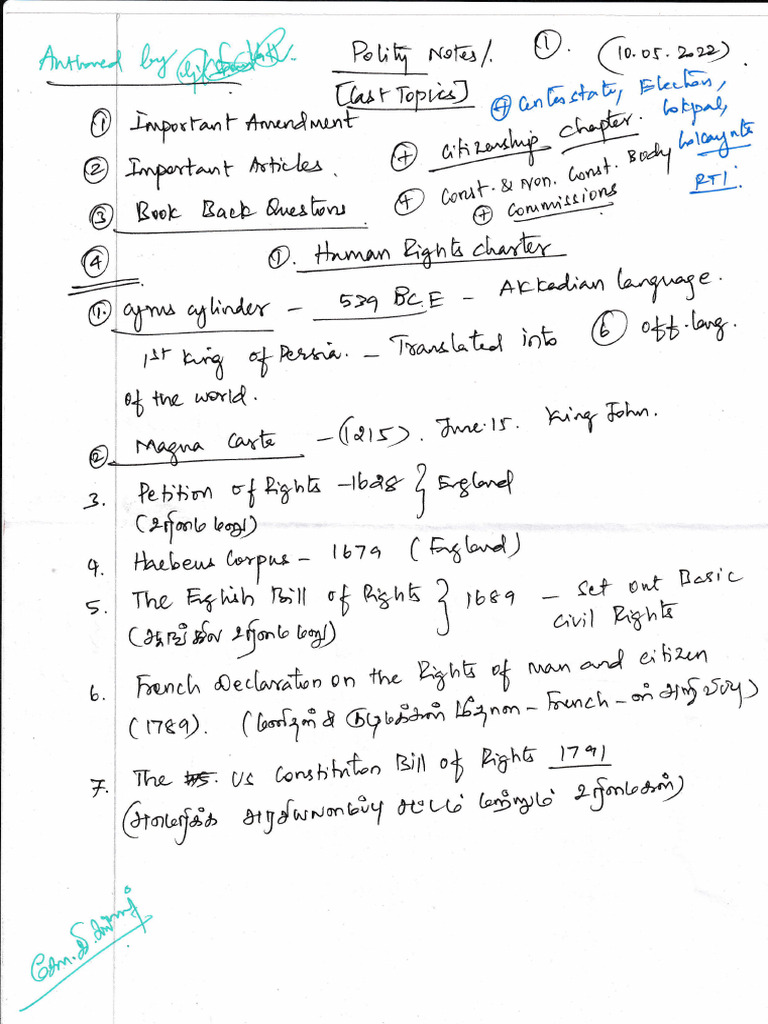 Authored by
Polity Notes/. ①. (10.05.2022)
[Last Topics]
① Important Amendment
⊕ Centerstate, Election, Lokpal, Lolcayukta
RTI.
② Important Articles.
⊕ Citizenship Chapter.
③ Book Back Questions
⊕ Const. & Non. Const. Body
⊕ Commissions
④ ①. Human Rights Charter
①. Cyrus cylinder – 539 BC.E – Akkadian language.
1st King of Persia. – Translated into ⑥ off. lang.
of the world.
② Magna Carte – (1215). June.15. King John.
3. Petition of Rights – 1628 } England
(உரிமை மனு)
4. Haebeus Corpus – 1679 (England)
5. The English Bill of Rights } 1689 – Set out Basic
Civil Rights
(ஆங்கில உரிமை மனு)
6. French Declaration on the Rights of man and citizen
(1789). (மனிதன் & குடிமக்கள் மீதான – French – ன் அறிவிப்பு)
7. The US Constitution Bill of Rights 1791
(அமெரிக்க அரசியலமைப்பு சட்டம் மற்றும் உரிமைகள்)